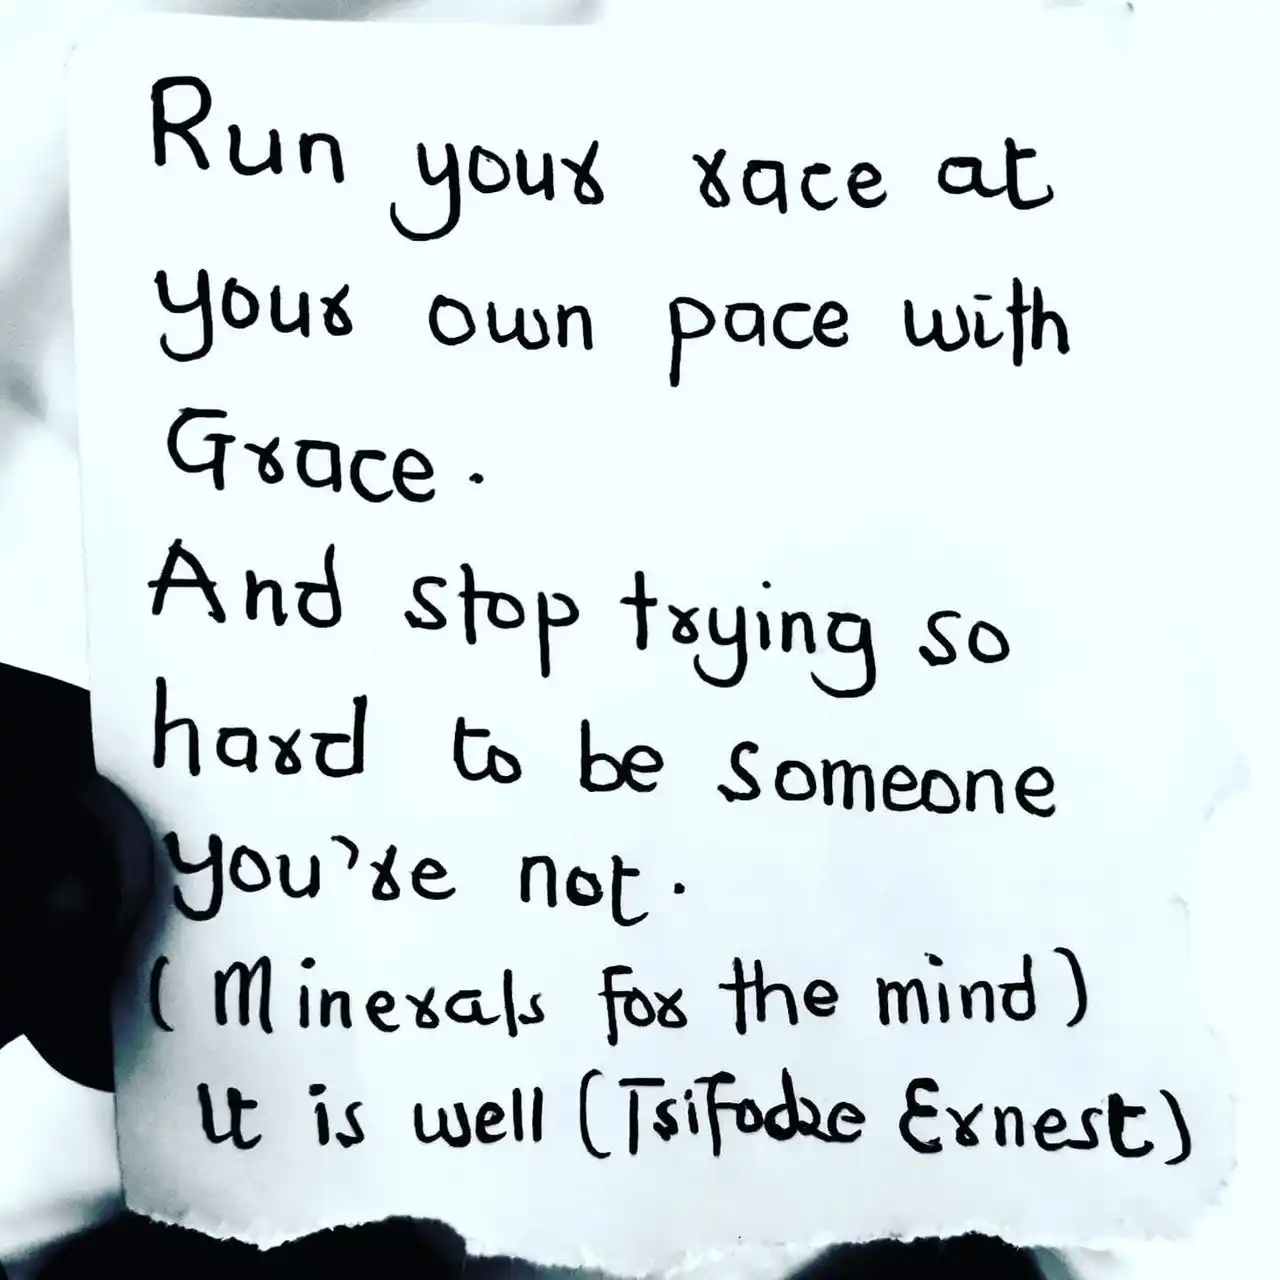 Run your race at
your own pace with
Grace.
And stop trying so
hard to be someone
you're not.
(Minerals for the mind)
It is well (Tsifodze Ernest)